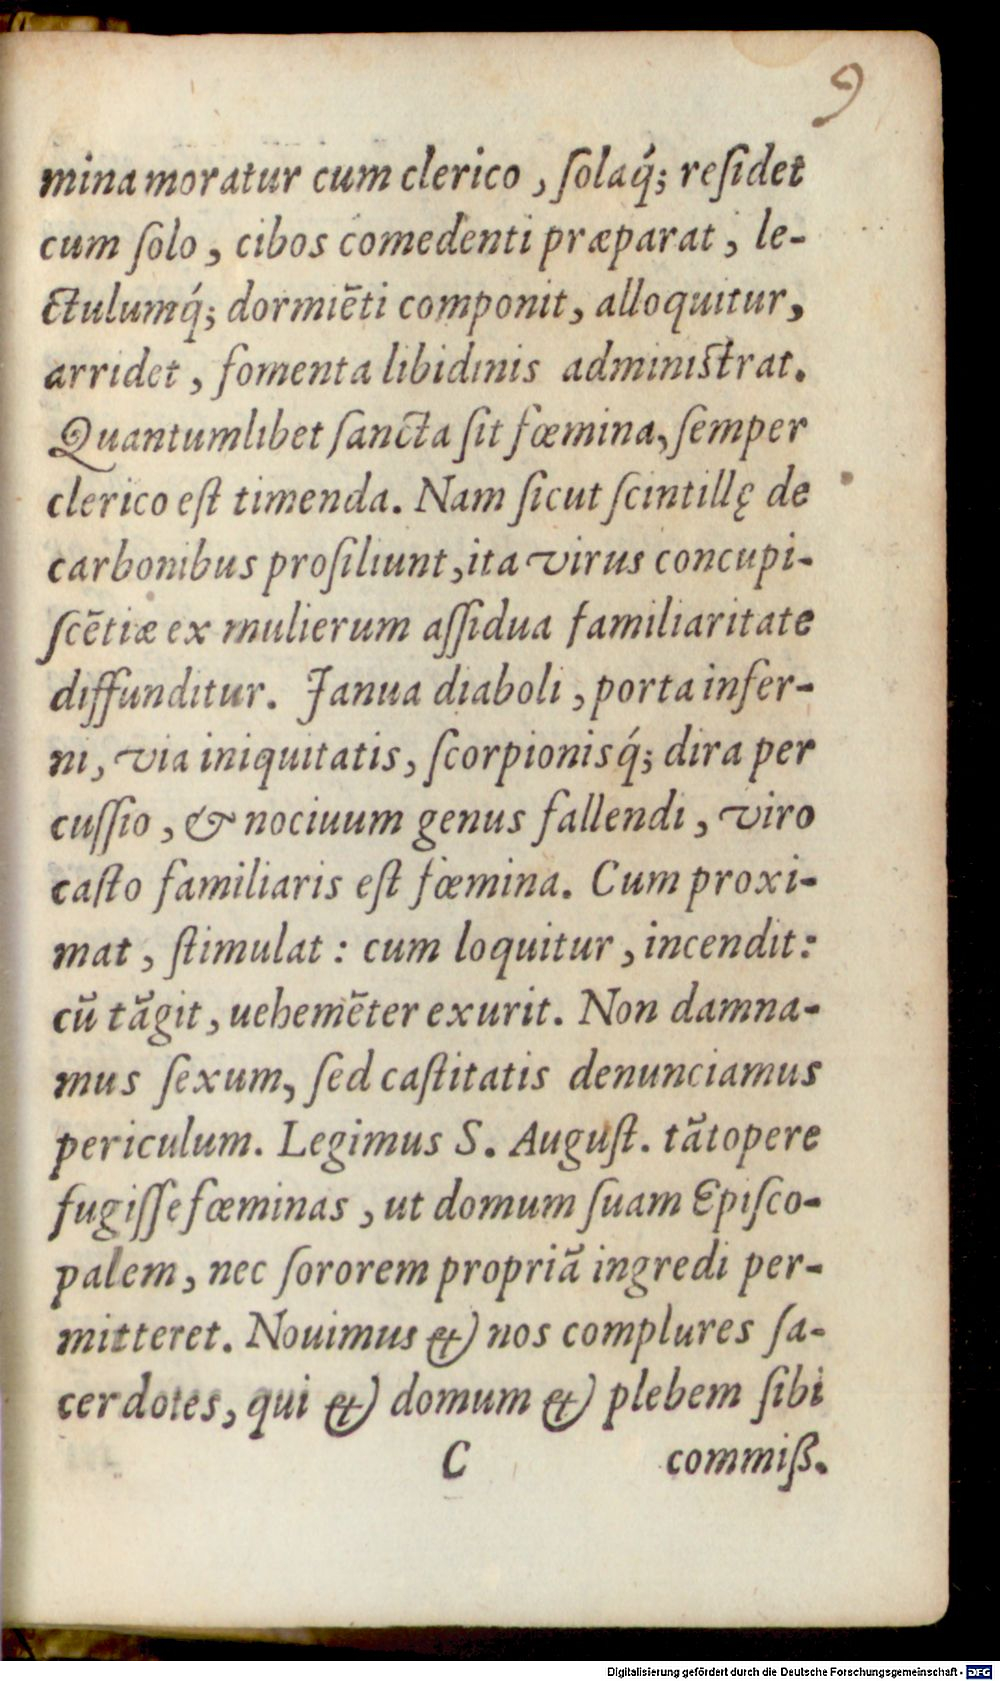 9
mina moratur cum clerico , ſolaq́; reſidet
cum ſolo , cibos comedenti præparat , le-
ctulumq́; dormiēti componit, alloquitur,
arridet , fomenta libidinis administrat.
Quantumlibet ſancta ſit fœmina, ſemper
clerico eſt timenda. Nam ſicut ſcintillę de
carbonibus proſiliunt, ita virus concupi-
ſcētiæ ex mulierum aſſidua familiaritate
diffunditur. Janua diaboli , porta infer-
ni, via iniquitatis, ſcorpionisq́; dira per
cuſſio , & nociuum genus fallendi , viro
caſto familiaris eſt fœmina. Cum proxi-
mat , ſtimulat : cum loquitur , incendit:
cū tāgit, uehemēter exurit. Non damna-
mus ſexum, ſed caſtitatis denunciamus
periculum. Legimus S. Auguſt. tātopere
fugiſſe fœminas , ut domum ſuam Epiſco-
palem, nec ſororem propriā ingredi per-
mitteret. Nouimus & nos complures ſa-
cerdotes, qui & domum & plebem ſibi
C commiß.
Digitalisierung gefördert durch die Deutsche Forschungsgemeinschaft - DFG